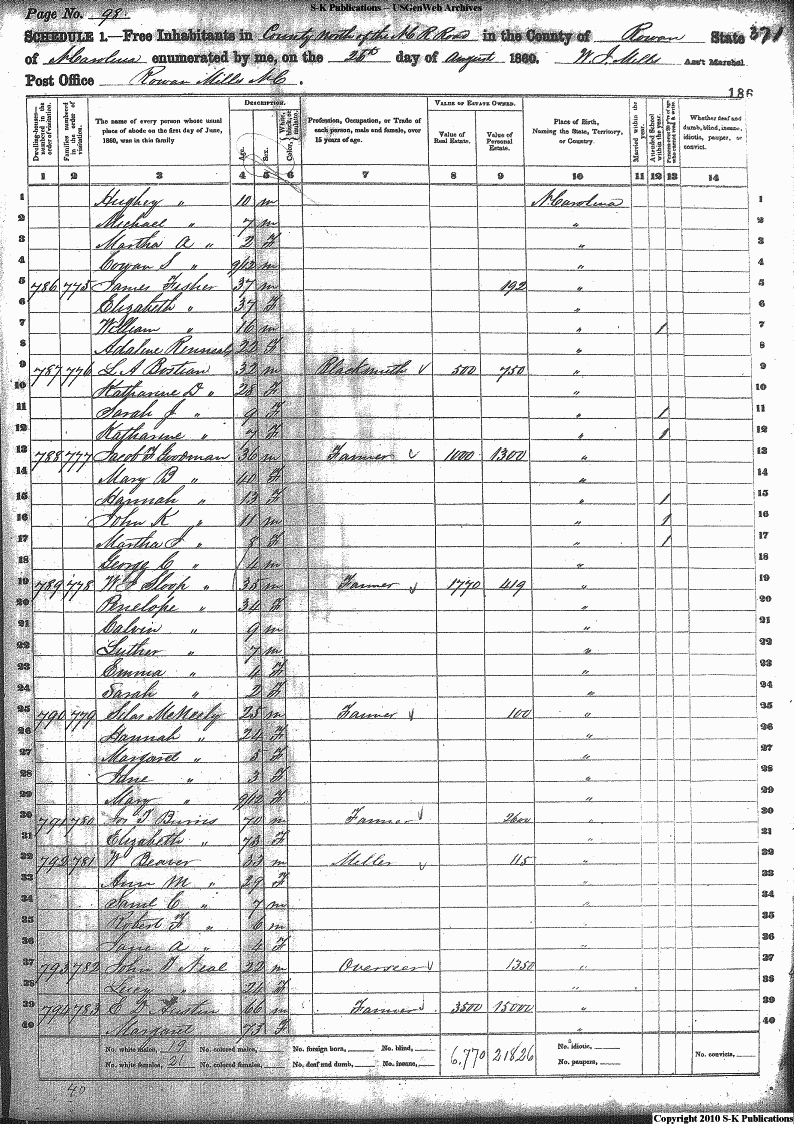 S-K Publications – USGenWeb Archives
Page No. 98
SCHEDULE 1.—Free Inhabitants in County North of the N C R Road in the County of Rowan State 371
of N Carolina enumerated by me, on the 28th day of August 1860. W. J. Mills Ass't Marshal.
Post Office Rowan Mills N C.
186
Dwelling-houses— numbered in the order of visitation.
Families numbered in the order of visitation.
The name of every person whose usual place of abode on the first day of June, 1860, was in this family
DESCRIPTION.
Age.
Sex.
Color, White, black, or mulatto.
Profession, Occupation, or Trade of each person, male and female, over 15 years of age.
VALUE OF ESTATE OWNED.
Value of Real Estate.
Value of Personal Estate.
Place of Birth, Naming the State, Territory, or Country.
Married within the year.
Attended School within the year.
Whether deaf and dumb, blind, insane, idiotic, pauper, or convict.
1 2 3 4 5 6 7 8 9 10 11 12 13 14
1 Hughey " 10 m N Carolina 1
2 Michael " 7 m " 2
3 Martha A " 2 F " 3
4 Cowan S " 9/12 m " 4
5 786 775 James Fisher 37 m 192 " 5
6 Elizabeth " 37 F " 6
7 William " 16 m " / 7
8 Adaline 22 F " 8
9 787 776 L A Bostian 32 m Blacksmith 500 750 " 9
10 Katharine D " 28 F " 10
11 Sarah J " 9 F " / 11
12 Katharine " 7 F " / 12
13 788 777 Jacob F Goodman 36 m Farmer 1000 1300 " 13
14 Mary B " 40 F " 14
15 Hannah " 13 F " / 15
16 John K " 11 m " / 16
17 Martha J " 8 F " / 17
18 George C " 4 m " 18
19 789 778 W F Sloop " 38 m Farmer 1770 419 " 19
20 Penelope " 34 F " 20
21 Calvin " 9 m " 21
22 Luther " 7 m " 22
23 Emma " 4 F " 23
24 Sarah " 2 F " 24
25 790 779 Silas McNeely 25 m Farmer 100 " 25
26 Hannah " 24 F " 26
27 Margaret " 5 F " 27
28 Jane " 3 F " 28
29 Mary " 9/12 F " 29
30 791 780 Jos T Burns 70 m Farmer 2600 " 30
31 Elizabeth " 73 F " 31
32 792 781 W Beaver 33 m Miller 115 " 32
33 Ann M " 29 F " 33
34 Saml C " 7 m " 34
35 Robert F " 6 m " 35
36 Jane A " 4 F " 36
37 793 782 John Neal 22 m Overseer 1350 " 37
38 Lucy " 24 F " 38
39 794 783 E Austin 66 m Farmer 3500 15000 " 39
40 Margaret 73 F 40
No. white males, 19 No. colored males, No. foreign born, No. blind, 6,770 21826 No. idiotic, No. convicts,
No. white females, 21 No. colored females, No. deaf and dumb, No. insane, No. paupers,
40
Copyright 2010 S-K Publications